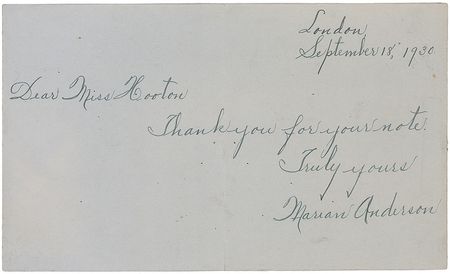 London
September 18, 1930
Dear Miss Hooton
Thank you for your note.
Truly yours
Marian Anderson